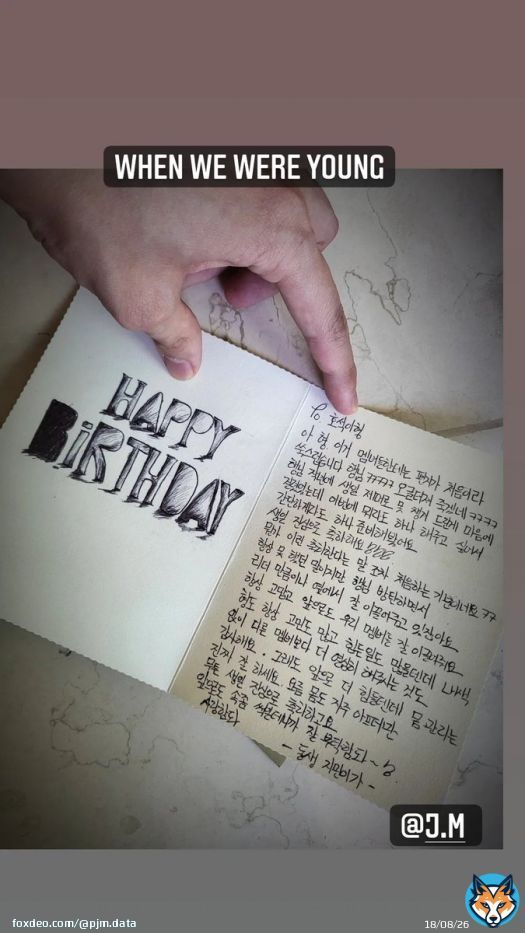 WHEN WE WERE YOUNG
HAPPY
BiRTHDAY
To 호석이형
아 형 이거 멤버들한테는 편지가 처음이라
쑥스럽습니다 형님 ㅋㅋㅋㅋㅋ 오글터져 죽겠네 ㅋㅋㅋㅋ
형님 작년에 생일 제대로 못 챙겨 드린게 마음에
걸렸었는데 이번에 뭐라도 하나 해주고 싶어서
간단하게라도 하나 준비해봤어요
생일 진심으로 축하해요
뭔가 이런 축하한다는 말 조차 처음하는 기분이네요 ㅋㅋ
항상 못 했던 말이지만 형님 방탄하면서
리더 만큼이나 옆에서 잘 이끌어주고 있잖아요
항상 고맙고 앞으로도 우리 멤버들 잘 이끌어줘요
형도 항상 고민도 많고 힘든일도 많을텐데 내색
없이 다른 멤버보다 더 열심히 해주시는 것도
감사해요. 그래도 앞으로 더 힘들텐데 몸 관리는
진짜 잘 하세요. 요즘 몸도 자주 아프더만
무튼 생일 진심으로 축하하고요
앞으로도 속좀 썩일테니까 잘 부탁함돠~
사랑함돠
- 동생 지민이가 -
@J.M
foxdeo.com/@pjm.data
18/08/26